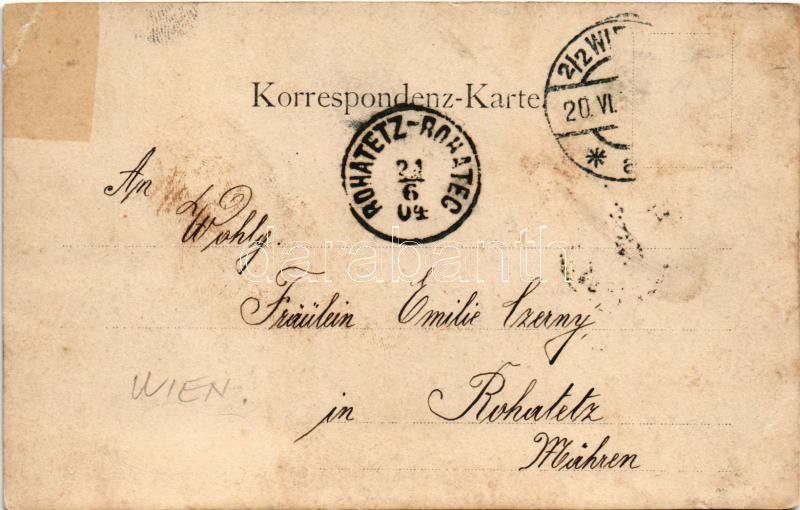 2/2 WI
20. VI.
*
Korrespondenz-Karte.
ROHATETZ-ROHATEC
21
6
04
An
Wohlg.
Fräulein Emilie Czerny,
in Rohatetz
Mähren
WIEN.
darabanth